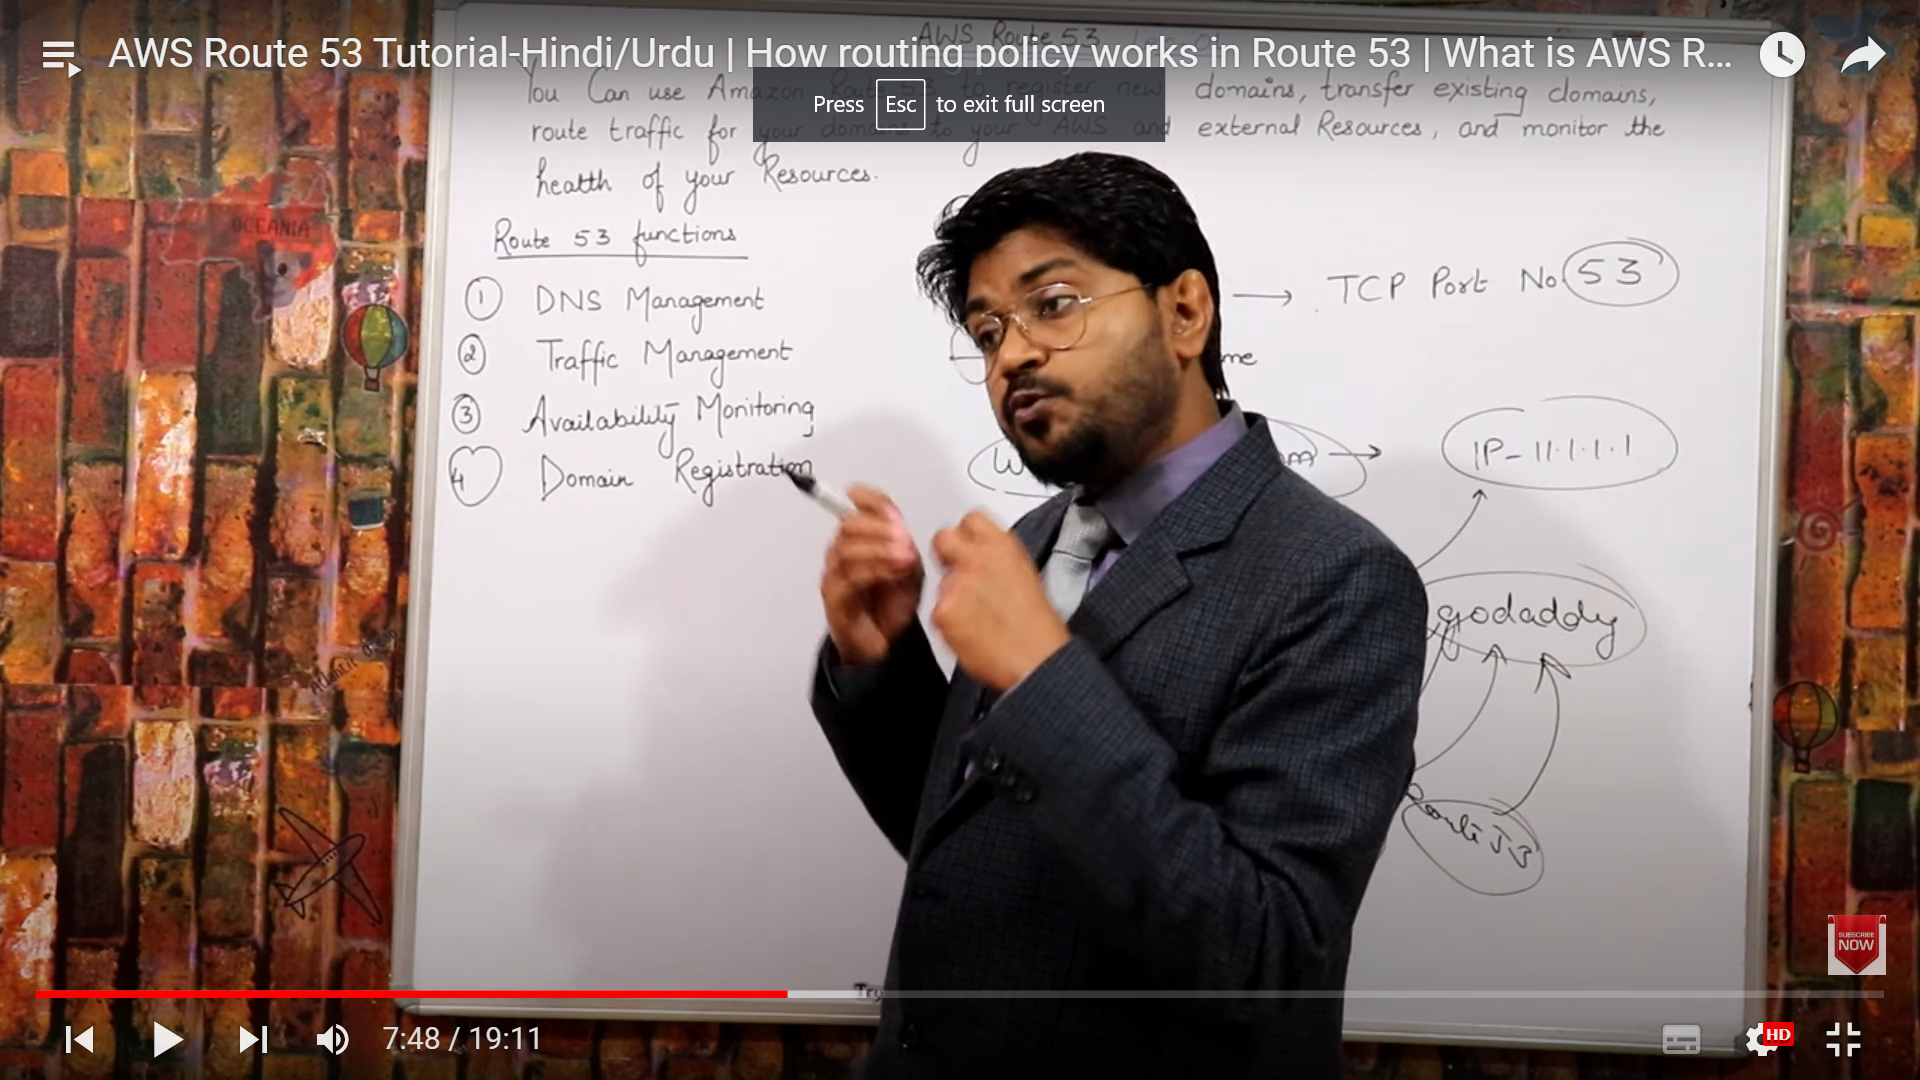 AWS Route 53 Tutorial-Hindi/Urdu | How routing policy works in Route 53 | What is AWS R...
AWS Route 53
Press Esc to exit full screen
You Can use Amazon Route 53 to register new domains, transfer existing domains,
route traffic for your domains to your AWS and external Resources, and monitor the
health of your Resources.
Route 53 functions
1 DNS Management
2 Traffic Management
3 Availability Monitoring
4 Domain Registration
→ TCP Port No. 53
me
W m → IP-11.1.1.1
godaddy
Route 53
OCEANIA
Atlantic
Try
SUBSCRIBE
NOW
7:48 / 19:11
HD